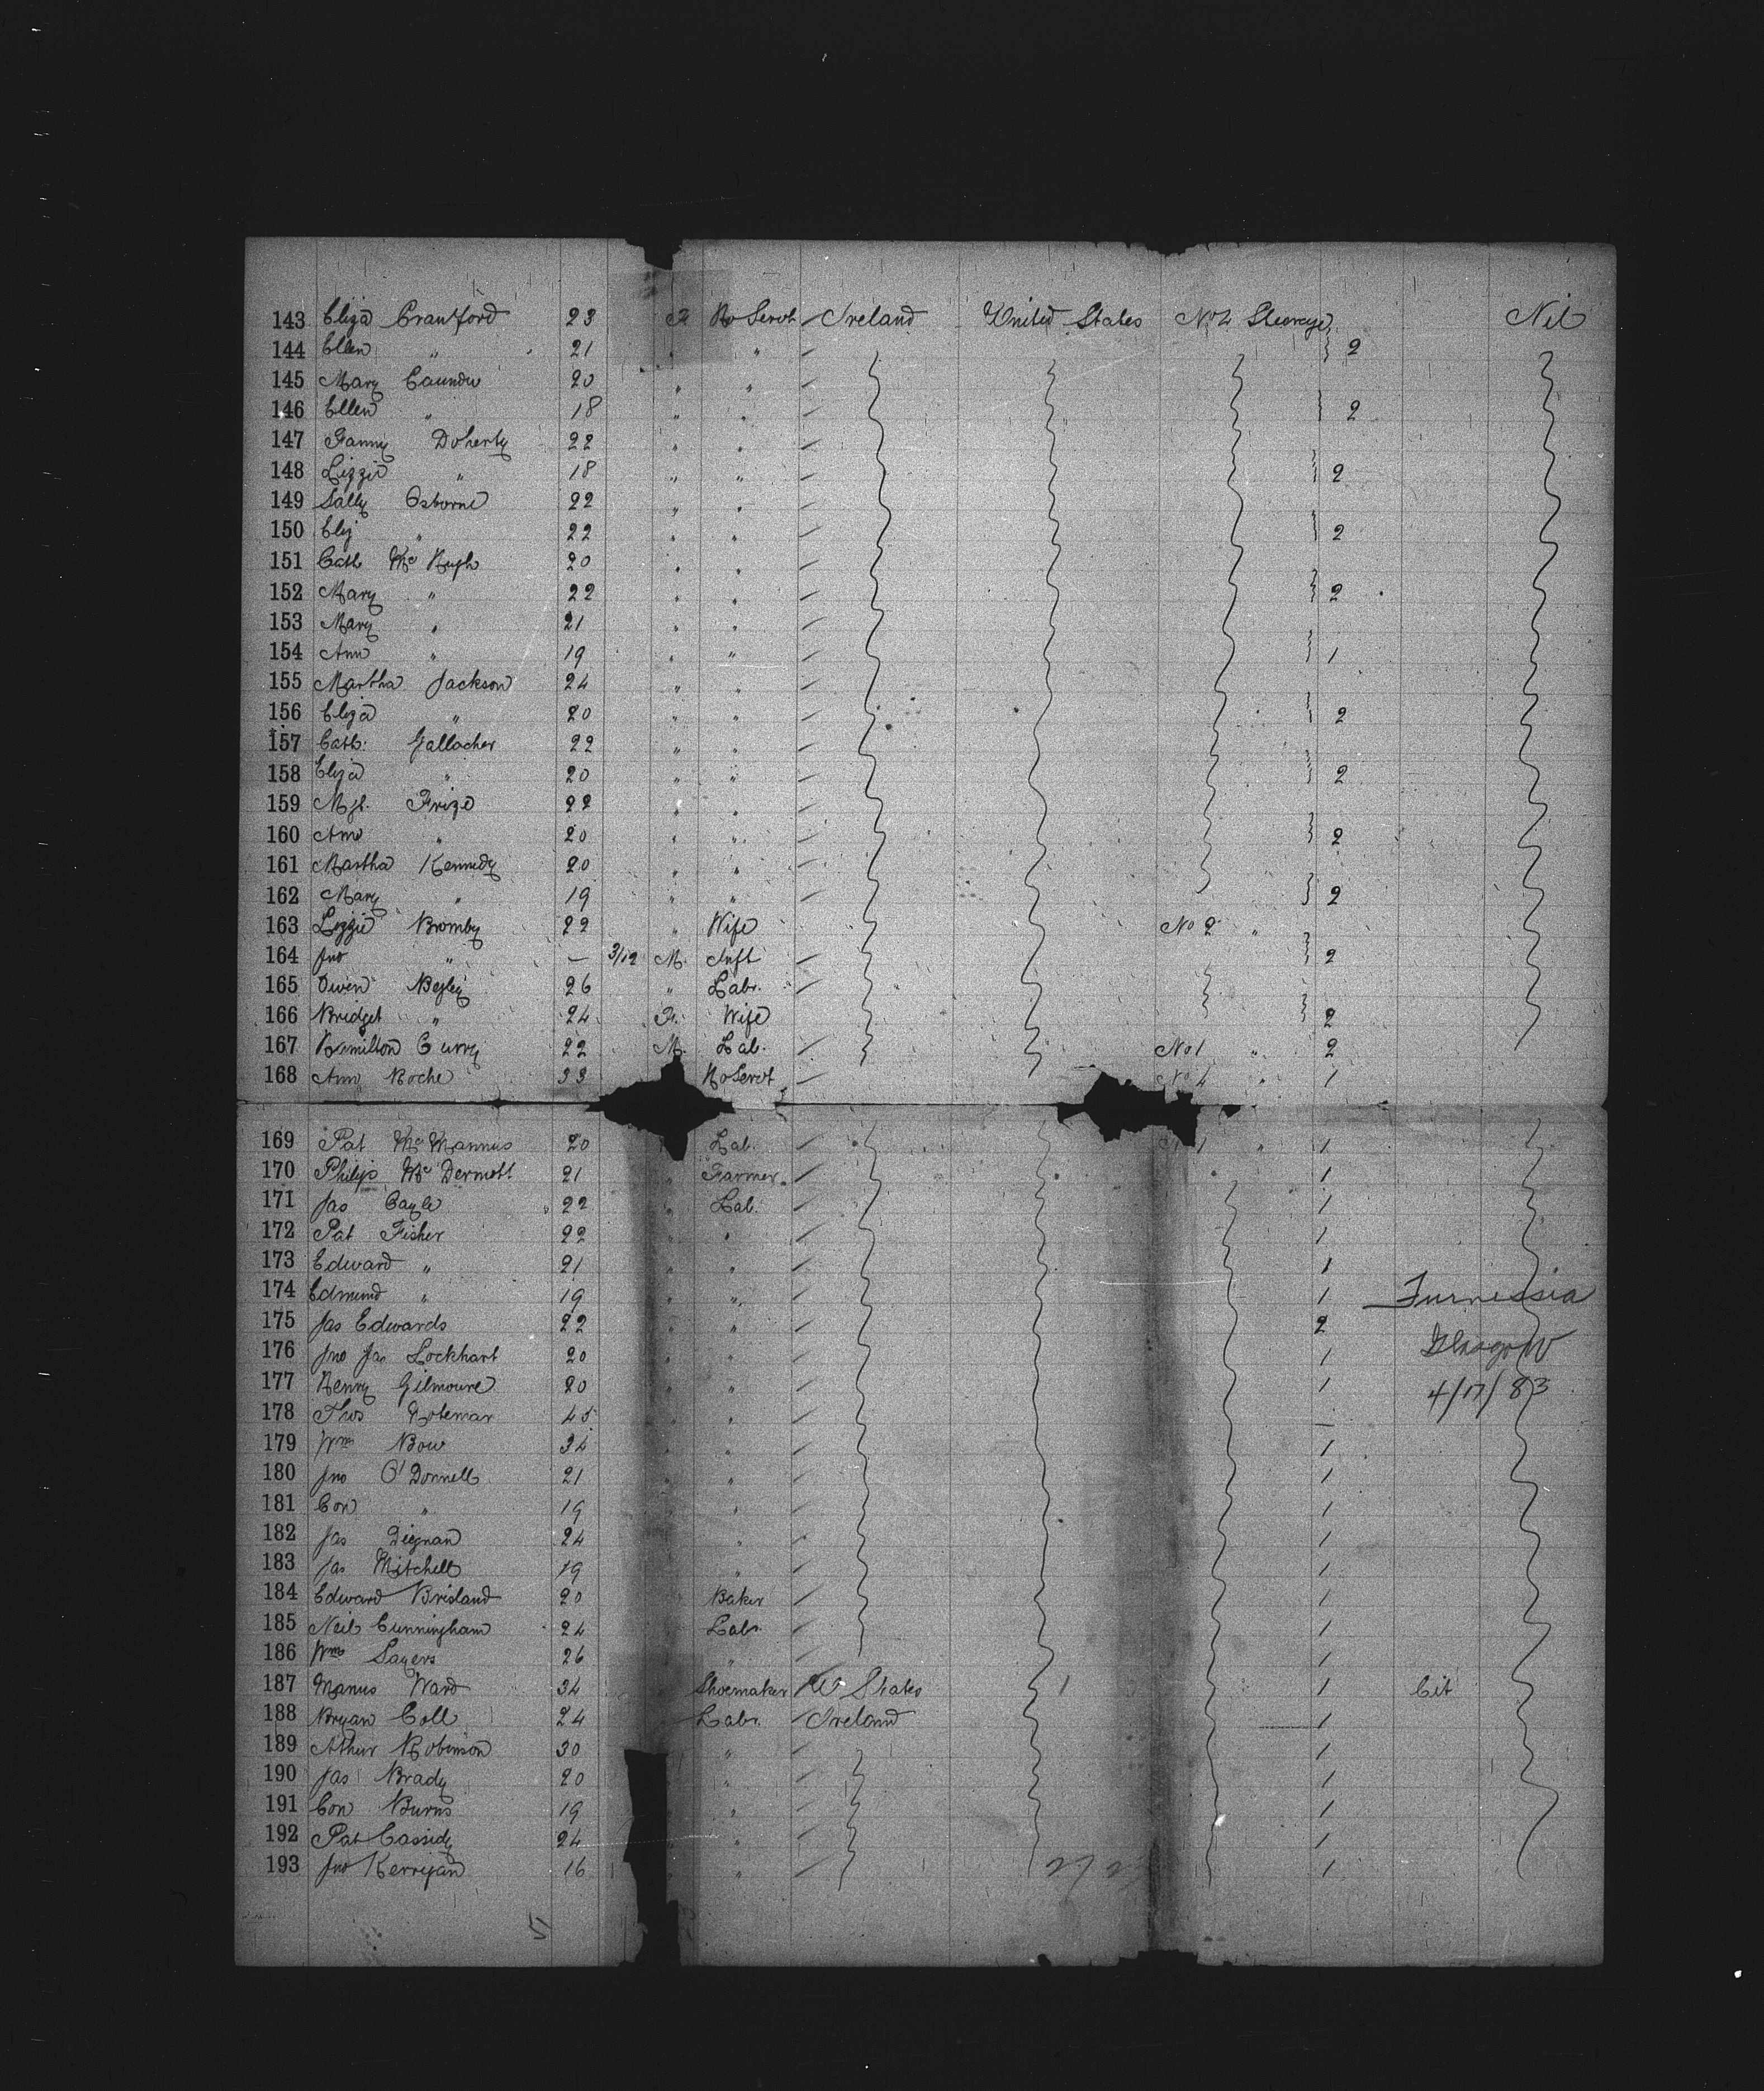 143 Eliza Crawford 23 F Ho Servt Ireland United States No 4 Steerage Nil
144 Ellen " 21 " " 2
145 Mary 20 " "
146 Ellen " 18 " " 2
147 Fanny Doherty 22 " "
148 Lizzie " 18 " " 2
149 Sally Osborne 22 " "
150 Eliz " 22 " " 2
151 Cath Mc Hugh 20 " "
152 Mary " 22 " " 2
153 Mary " 21 " "
154 Ann " 19 " " 1
155 Martha Jackson 24 " "
156 Eliza " 20 " " 2
157 Cath: Gallacher 22 " "
158 Eliza " 20 " " 2
159 Mgt. Frize 22 " "
160 Ann " 20 " " 2
161 Martha Kennedy 20 " "
162 Mary " 19 " " 2
163 Lizzie Bromby 22 " Wife No 2 "
164 Jno " — 3/12 M. Inft 2
165 Owen Begley 26 " Labr.
166 Bridget " 24 F. Wife 2
167 Hamilton Curry 22 M. Lab. No 1 " 2
168 Ann Roche 33 Ho Servt No 4 " 1
169 Pat Mc Mannus 20 Lab. 1 " 1
170 Philip Mc Dermott 21 " Farmer 1
171 Jas 22 " Lab. 1
172 Pat Fisher 22 " " 1
173 Edward " 21 " " 1
174 Edmund " 19 " " 1 Furnessia
175 Jas Edwards 22 " " 2
176 Jno Jas Lockhart 20 " " 1 Glasgow
177 Henry Gilmoure 20 " " 1 4/17/83
178 Thos 45 " " —
179 Wm Bow 34 " " 1
180 Jno O'Donnell 21 " " 1
181 Con " 19 " " 1
182 Jas Dignan 24 " 1
183 Jas Mitchell 19 " 1
184 Edward Brisland 20 Baker 1
185 Neil Cunningham 24 Labr. 1
186 Wm Sayers 26 " 1
187 Manus Ward 34 Shoemaker U States 1 1 Cit
188 Bryan Coll 24 Labr. Ireland 1
189 Athur Robinson 30 " 1
190 Jas Brady 20 " 1
191 Con Burns 19 " 1
192 Pat Cassidy 24 " 1
193 Jno Kerrigan 16 " 1